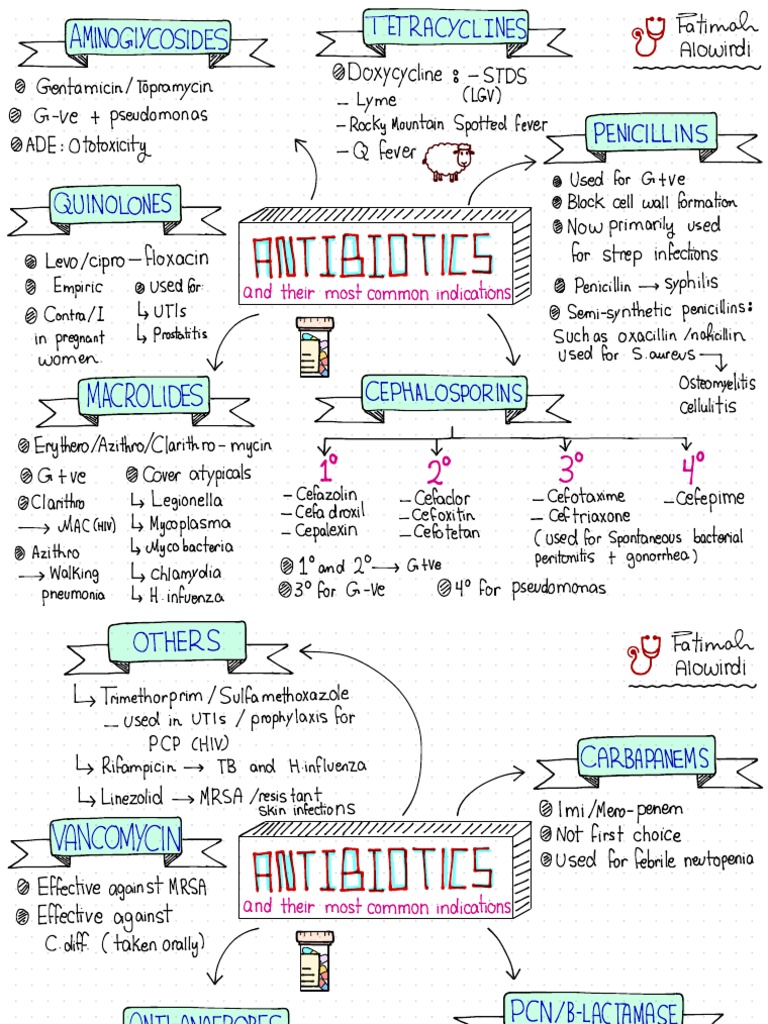 AMINOGLYCOSIDES
Gentamicin/Topramycin
G-ve + pseudomonas
ADE: Ototoxicity
TETRACYCLINES
Doxycycline : – STDS
(LGV)
– Lyme
– Rocky Mountain Spotted fever
– Q fever
Fatimah
Alowirdi
PENICILLINS
Used for G+ve
Block cell wall formation
Now primarily used
for strep infections
Penicillin → syphilis
Semi-synthetic penicillins:
Such as oxacillin/nafcillin
used for S.aureus →
Osteomyelitis
cellulitis
QUINOLONES
Levo/cipro – floxacin
Empiric
Contra/I
in pregnant
women.
used for:
↳ UTIs
↳ Prostatitis
ANTIBIOTICS
and their most common indications
MACROLIDES
Erythero/Azithro/Clarithro – mycin
G+ve
Clarithro
→ MAC (HIV)
Azithro
→ Walking
pneumonia
Cover atypicals
↳ Legionella
↳ Mycoplasma
↳ Mycobacteria
↳ Chlamydia
↳ H.infuenza
CEPHALOSPORINS
1°
– Cefazolin
– Cefadroxil
– Cepalexin
2°
– Cefaclor
– Cefoxitin
– Cefotetan
3°
– Cefotaxime
– Ceftriaxone
(used for Spontaneous bacterial
peritonitis + gonorrhea)
4°
– Cefepime
1° and 2° → G+ve
3° for G-ve
4° for pseudomonas
OTHERS
↳ Trimethorprim/Sulfamethoxazole
– used in UTIs / prophylaxis for
PCP (HIV)
↳ Rifampicin → TB and H.influenza
↳ Linezolid → MRSA/resistant
skin infections
Fatimah
Alowirdi
CARBAPANEMS
Imi/Mero-penem
Not first choice
Used for febrile neutopenia
VANCOMYCIN
Effective against MRSA
Effective against
C.diff (taken orally)
ANTIBIOTICS
and their most common indications
ANTI-ANAEROBES
PCN/B-LACTAMASE